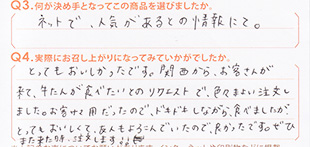 Q3.何が決め手となってこの商品を選びましたか。
ネットで、人気があるとの情報にて。
Q4.実際にお召し上がりになってみていかがでしたか。
とってもおいしかったです。関西から、お客さんが
来て、牛たんが食べたいとのリクエストで、色々まよい注文し
ました。お客様用だったので、ドキドキしながら、食べましたが、
とってもおいしくて、みんなよろこんでいたので、良かったです。ぜひ
また来た時、注文します。